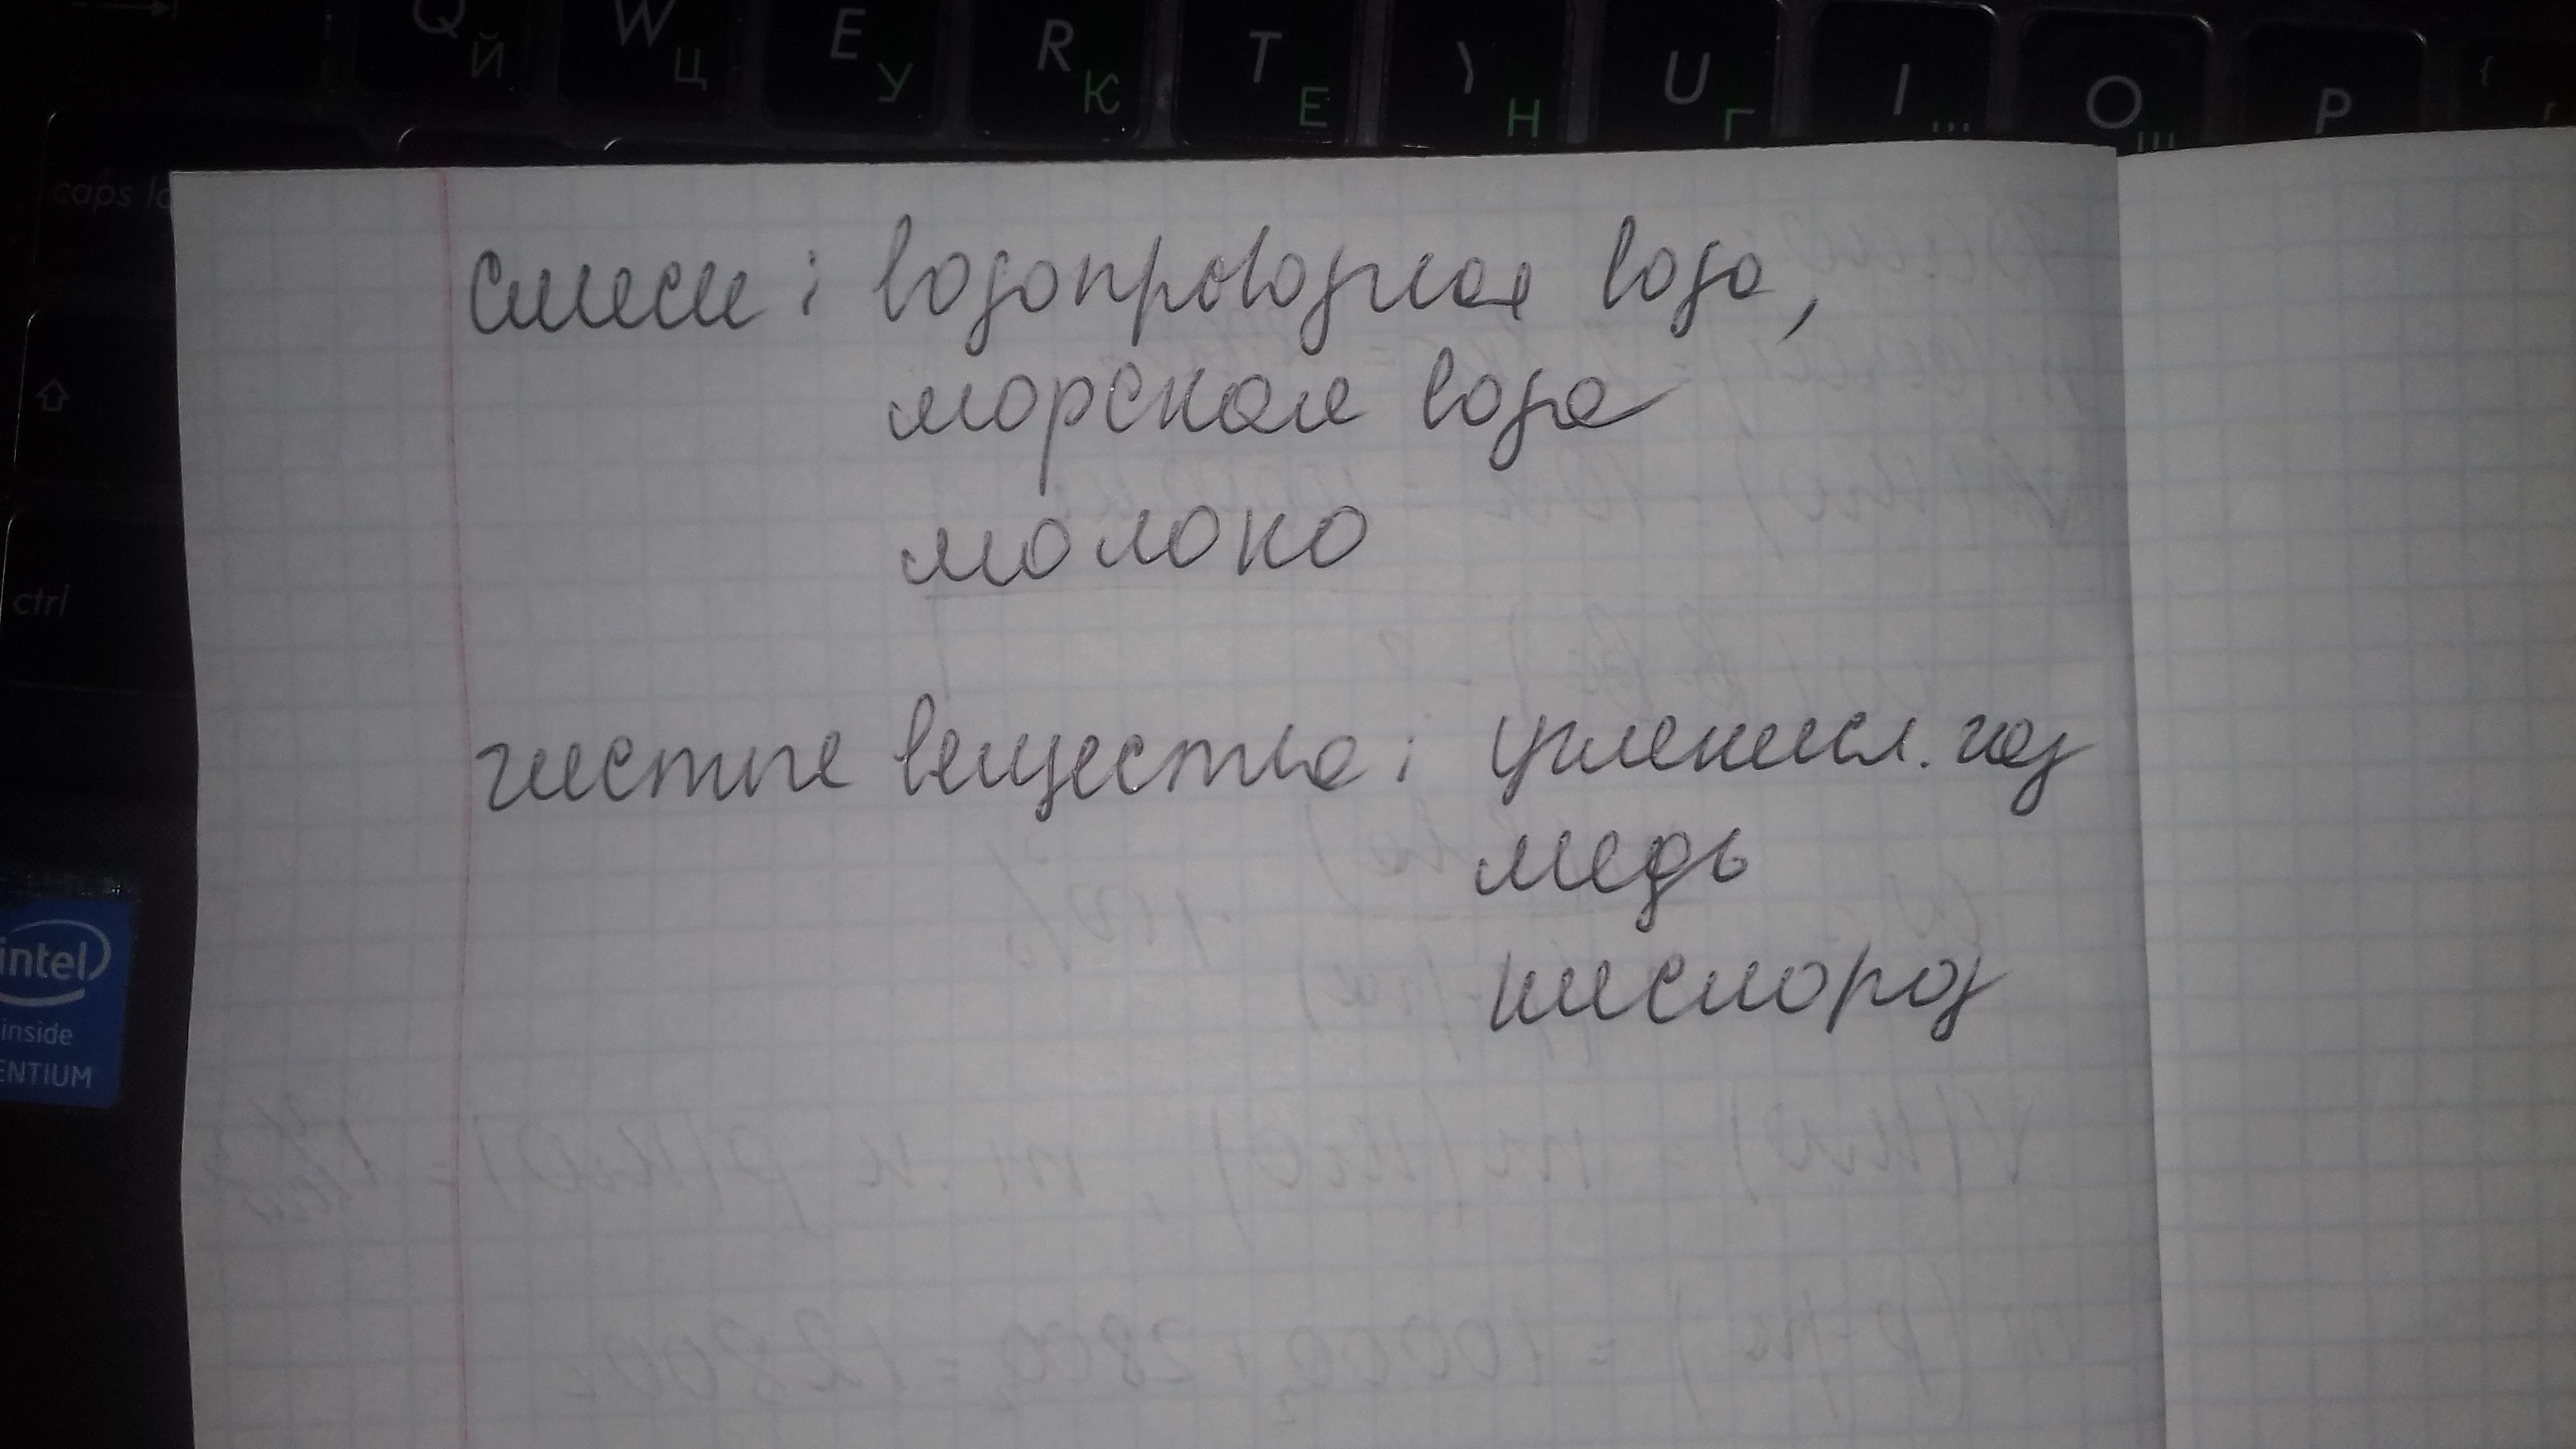 Q Й W Ц E У R К T Е Y Н U Г I Ш O Щ P
caps lo
смеси: водопроводная вода,
морская вода
молоко
ctrl
чистые вещества: углекисл. газ
медь
кислород
intel
inside
ENTIUM
= 10000г + 2800г = 12800г